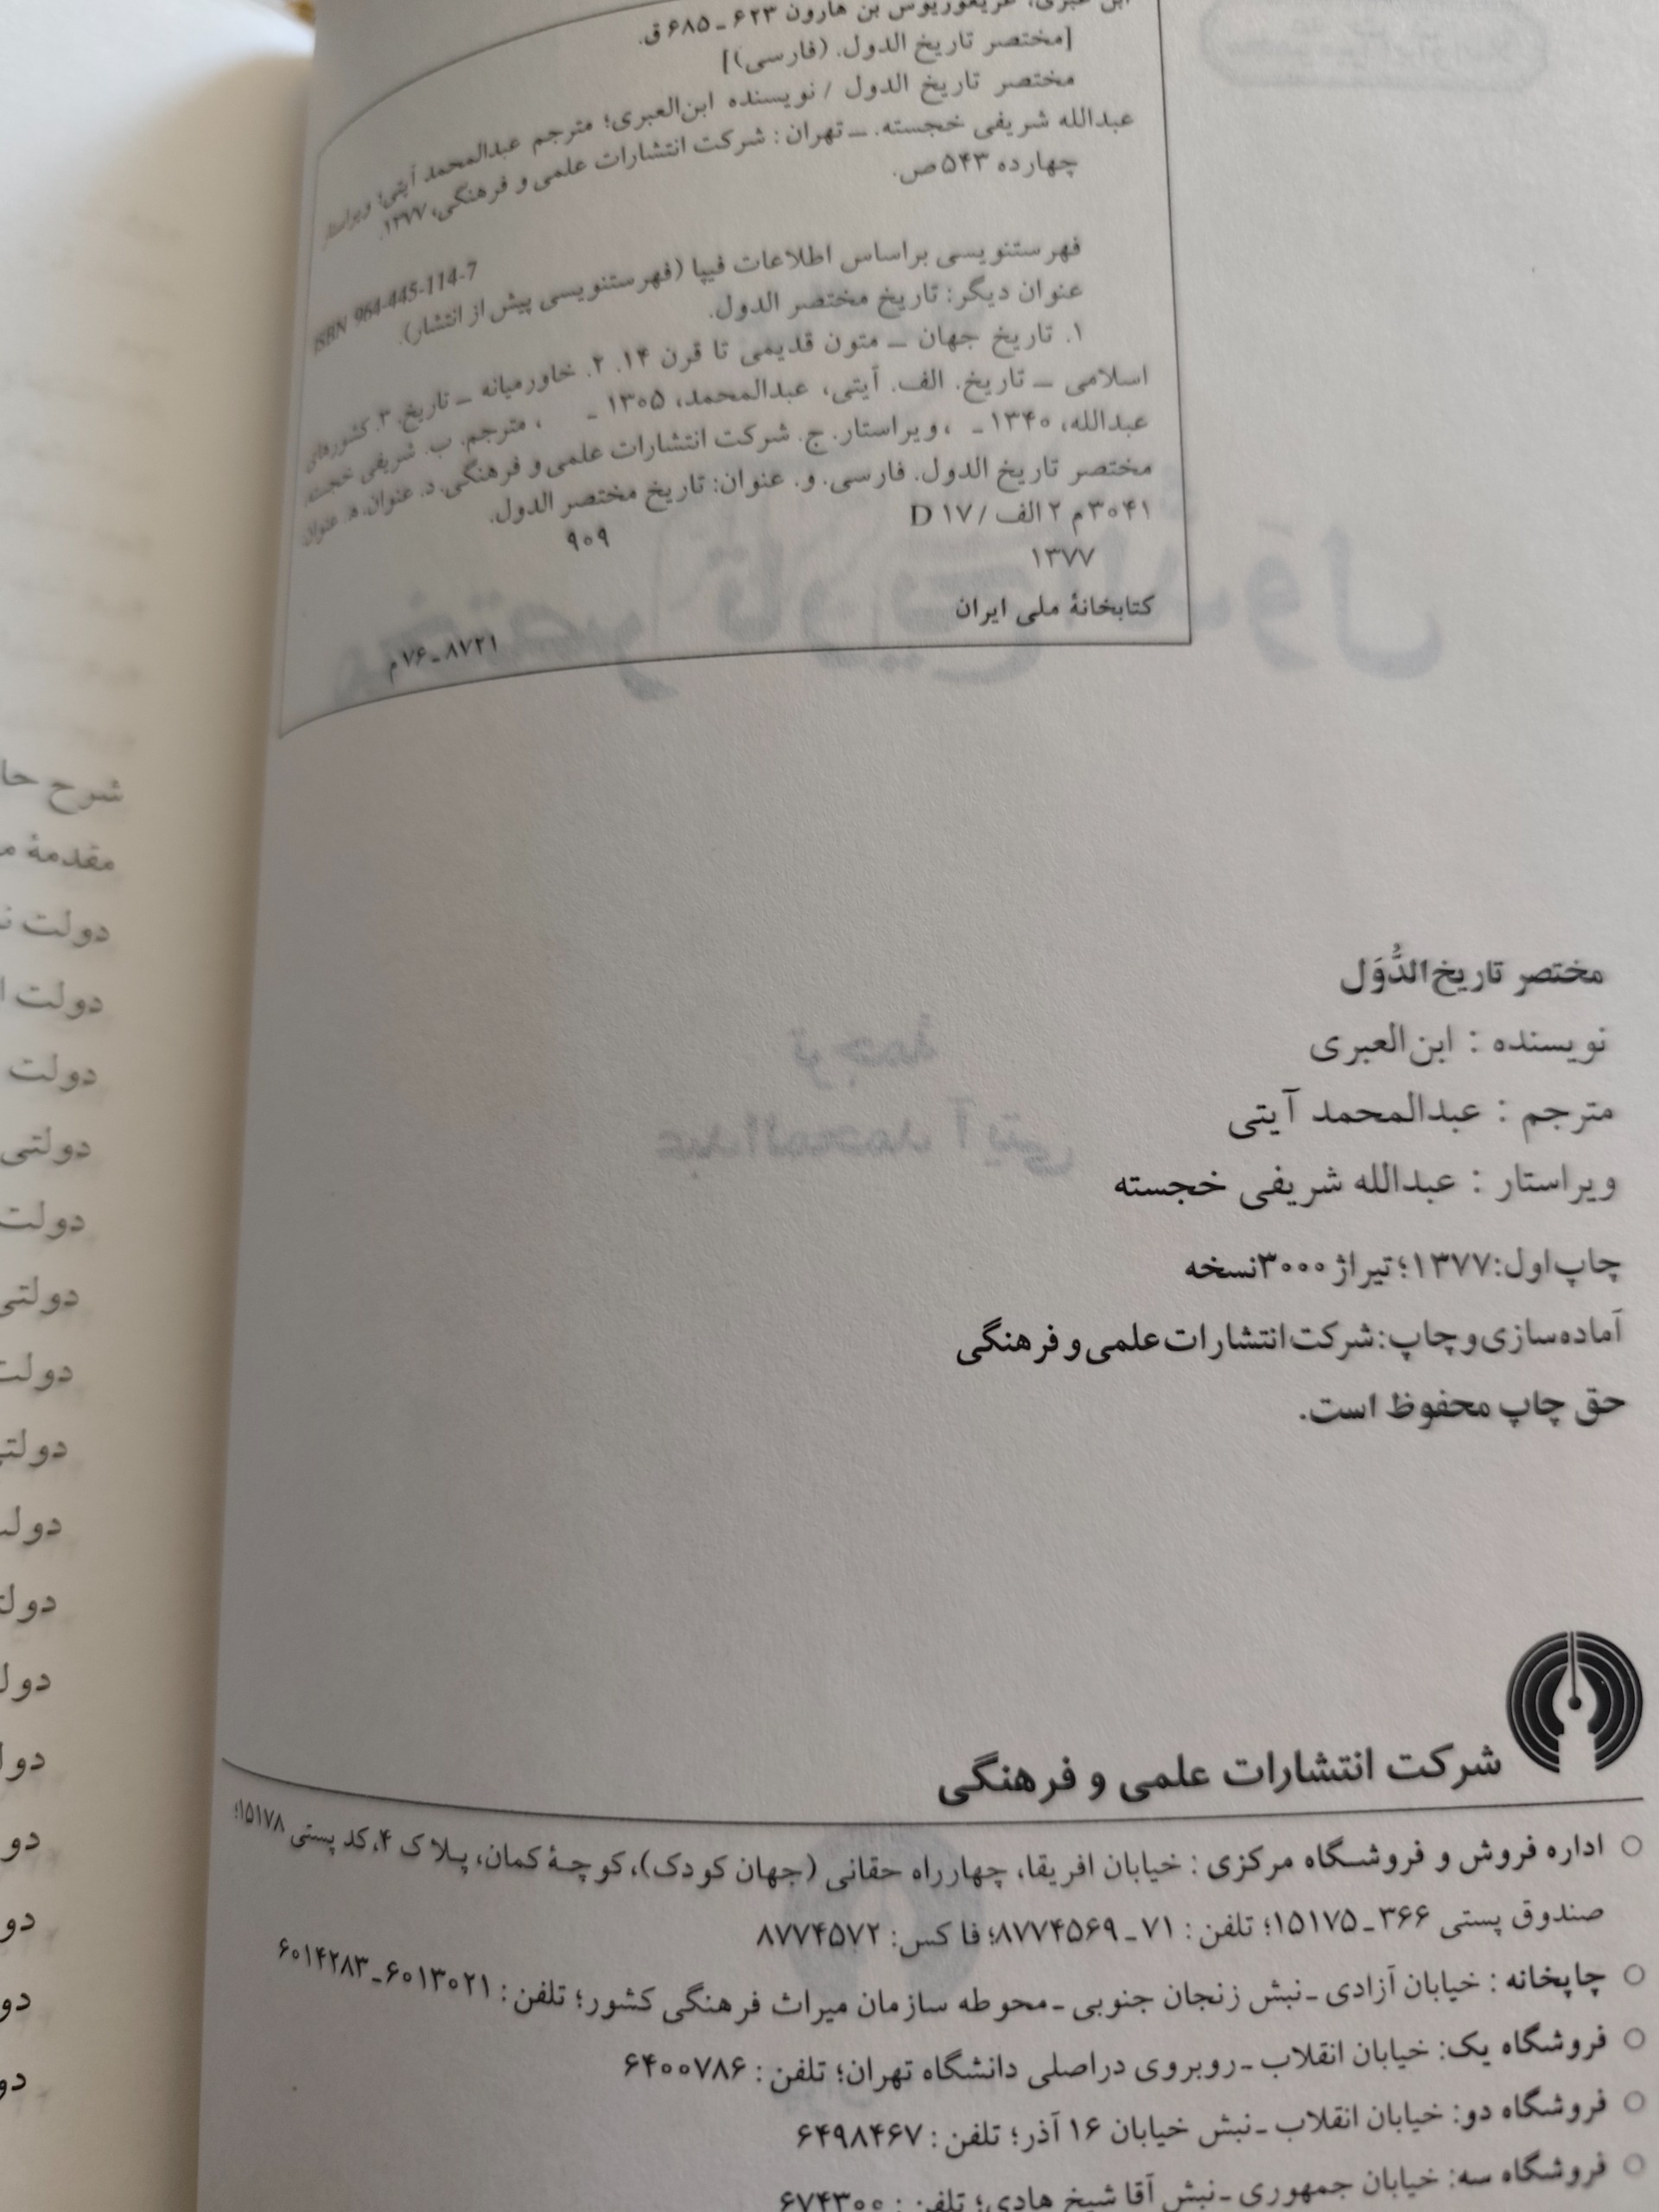 ابن عبری، غریغوریوس بن هارون ۶۲۳ ـ ۶۸۵ ق.
[مختصر تاریخ الدول. (فارسی)]
مختصر تاریخ الدول / نویسنده ابن‌العبری؛ مترجم عبدالمحمد آیتی؛ ویراستار
عبدالله شریفی خجسته. ــ تهران : شرکت انتشارات علمی و فرهنگی، ۱۳۷۷.
چهارده ۵۴۳ ص.
ISBN 964-445-114-7
فهرستنویسی براساس اطلاعات فیپا (فهرستنویسی پیش از انتشار).
عنوان دیگر: تاریخ مختصر الدول.
۱. تاریخ جهان ــ متون قدیمی تا قرن ۱۴. ۲. خاورمیانه ــ تاریخ. ۳. کشورهای
اسلامی ــ تاریخ. الف. آیتی، عبدالمحمد، ۱۳۰۵ ـ ، مترجم. ب. شریفی خجسته،
عبدالله، ۱۳۴۰ ـ ، ویراستار. ج. شرکت انتشارات علمی و فرهنگی. د. عنوان. ه. عنوان
مختصر تاریخ الدول. فارسی. و. عنوان: تاریخ مختصر الدول.
۳۰۴۱ م ۲ الف / D ۱۷
۹۰۹
۱۳۷۷
کتابخانهٔ ملی ایران
۸۷۲۱ ـ ۷۶ م
مختصر تاریخ‌الدُّوَل
نویسنده : ابن‌العبری
مترجم : عبدالمحمد آیتی
ویراستار : عبدالله شریفی خجسته
چاپ اول: ۱۳۷۷؛ تیراژ ۳۰۰۰ نسخه
آماده‌سازی و چاپ: شرکت انتشارات علمی و فرهنگی
حق چاپ محفوظ است.
شرکت انتشارات علمی و فرهنگی
○ اداره فروش و فروشگاه مرکزی : خیابان افریقا، چهارراه حقانی (جهان کودک)، کوچهٔ کمان، پلاک ۴، کد پستی ۱۵۱۷۸؛
صندوق پستی ۳۶۶ ـ ۱۵۱۷۵؛ تلفن : ۷۱ ـ ۸۷۷۴۵۶۹؛ فاکس: ۸۷۷۴۵۷۲
○ چاپخانه : خیابان آزادی ـ نبش زنجان جنوبی ـ محوطه سازمان میراث فرهنگی کشور؛ تلفن : ۶۰۱۳۰۲۱ ـ ۶۰۱۴۲۸۳
○ فروشگاه یک: خیابان انقلاب ـ روبروی دراصلی دانشگاه تهران؛ تلفن : ۶۴۰۰۷۸۶
○ فروشگاه دو: خیابان انقلاب ـ نبش خیابان ۱۶ آذر؛ تلفن : ۶۴۹۸۴۶۷
○ فروشگاه سه: خیابان جمهوری ـ نبش آقا شیخ هادی؛ تلفن : ۶۷۴۳۰۰
شرح حا
مقدمهٔ م
دولت ن
دولت ا
دولت
دولتی
دولت
دولتی
دولت
دولتی
دولت
دولت
دول
دول
دو
دو
دو
دو